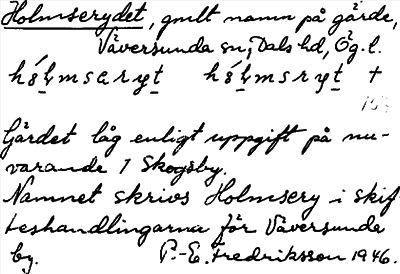 Holmserydet, gmlt namn på gärde,
Väversunda sn, Dals hd, Ög.l.
hó̱lmsaryt̲ hó̱lmsryt̲ +
Gärdet låg enligt uppgift på nu-
varande 1 Skogsby.
Namnet skrives Holmsery i skif-
teshandlingarna för Väversunda
by. P.-E. Fredriksson 1946.